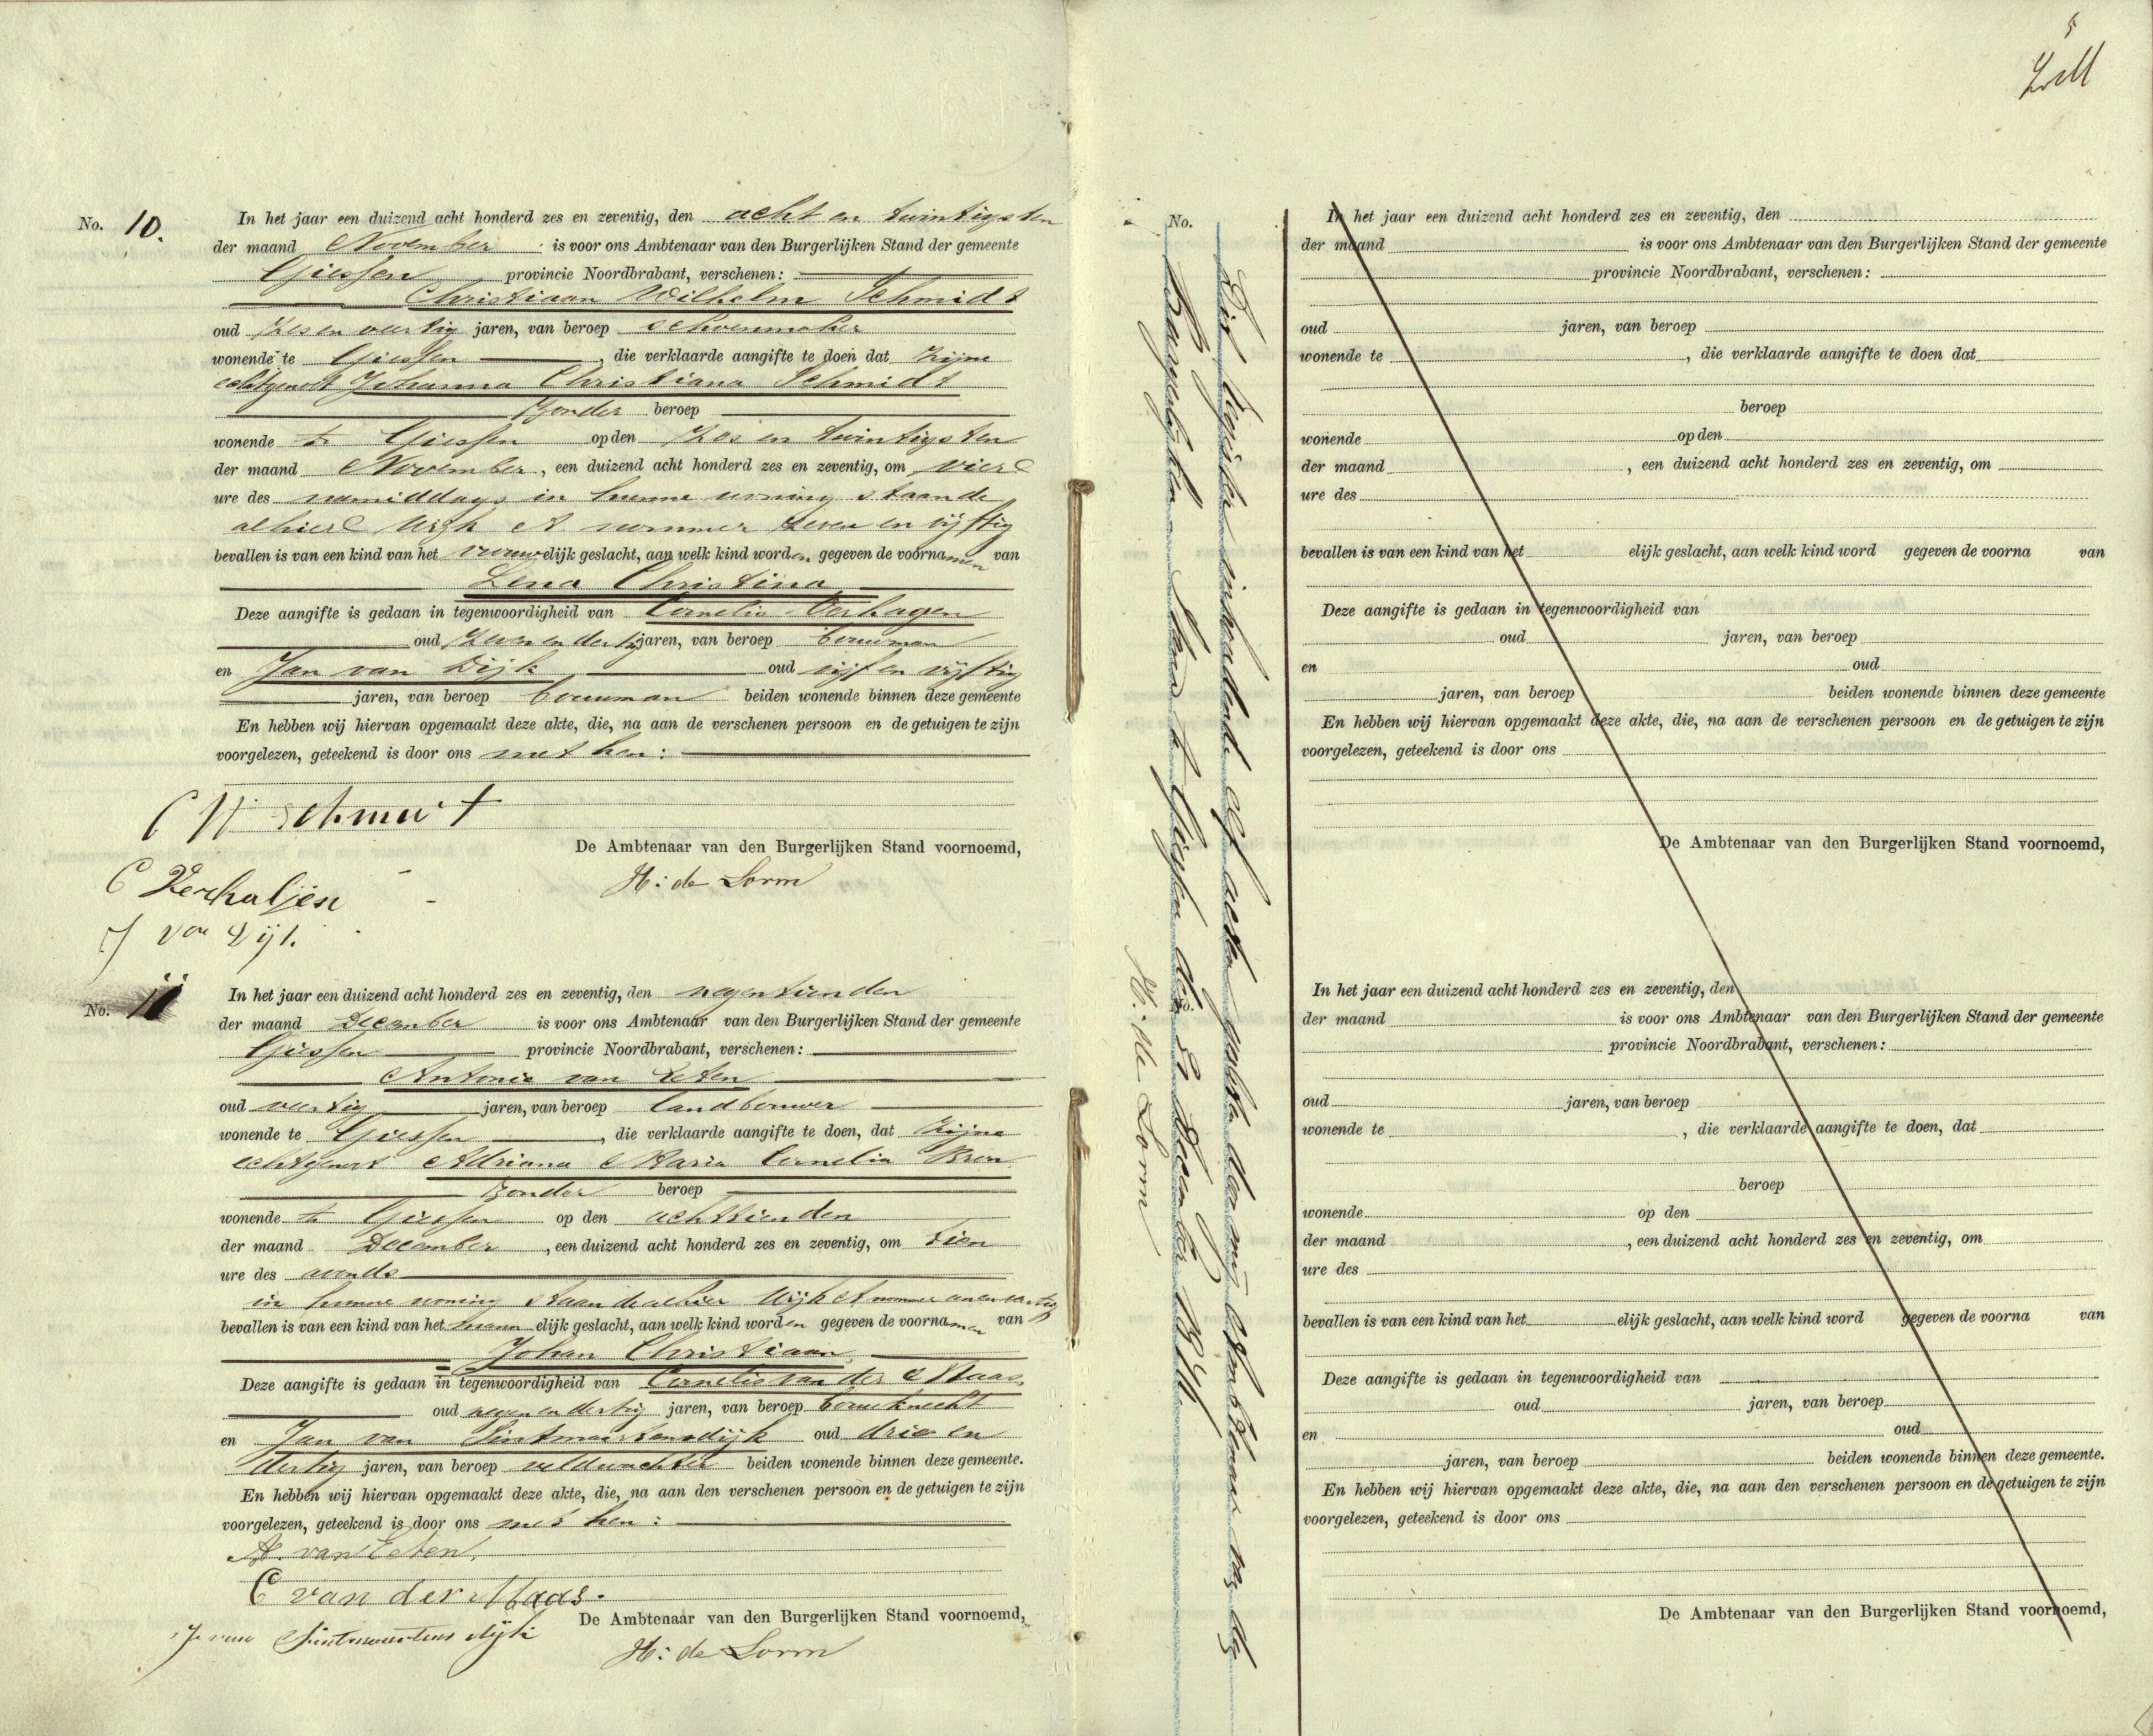 No. 10. In het jaar een duizend acht honderd zes en zeventig, den acht en twintigsten
der maand November is voor ons Ambtenaar van den Burgerlijken Stand der gemeente
Giessen provincie Noordbrabant, verschenen:
Christiaan Wilhelm Schmidt
oud zes en veertig jaren, van beroep schoenmaker
wonende te Giessen, die verklaarde aangifte te doen dat zijne
echtgenoot Johanna Christiana Schmidt
zonder beroep
wonende te Giessen op den zes en twintigsten
der maand November, een duizend acht honderd zes en zeventig, om vier
ure des namiddags in hunne woning staande
alhier Wijk A nummer zeven en vijftig
bevallen is van een kind van het vrouwelijk geslacht, aan welk kind worden gegeven de voornamen van
Lena Christina
Deze aangifte is gedaan in tegenwoordigheid van Cornelis Verhagen
oud zeven en dertig jaren, van beroep bouwman
en Jan van Dijk oud vijf en vijftig
jaren, van beroep bouwman beiden wonende binnen deze gemeente
En hebben wij hiervan opgemaakt deze akte, die, na aan de verschenen persoon en de getuigen te zijn
voorgelezen, geteekend is door ons met hen:
C W Schmidt
De Ambtenaar van den Burgerlijken Stand voornoemd,
H: de Lorm
J van Dijk
No. 11 In het jaar een duizend acht honderd zes en zeventig, den negentienden
der maand December is voor ons Ambtenaar van den Burgerlijken Stand der gemeente
Giessen provincie Noordbrabant, verschenen:
Antonie van Eeten
oud veertig jaren, van beroep landbouwer
wonende te Giessen, die verklaarde aangifte te doen, dat zijne
echtgenoot Adriana Maria Cornelia
zonder beroep
wonende te Giessen op den achttienden
der maand December, een duizend acht honderd zes en zeventig, om tien
ure des avonds
in hunne woning staande alhier Wijk A nummer een en veertig
bevallen is van een kind van het mannelijk geslacht, aan welk kind worden gegeven de voornamen van
Johan Christiaan
Deze aangifte is gedaan in tegenwoordigheid van Cornelis van der Maas,
oud negen en dertig jaren, van beroep bouwknecht
en Jan van Sintmaartensdijk oud drie en
dertig jaren, van beroep veldwachter beiden wonende binnen deze gemeente.
En hebben wij hiervan opgemaakt deze akte, die, na aan den verschenen persoon en de getuigen te zijn
voorgelezen, geteekend is door ons met hen:
A. van Eeten,
C van der Maas.
J. van Sintmaartensdijk
De Ambtenaar van den Burgerlijken Stand voornoemd,
H: de Lorm
5
Dit register inhoudende elf akten gesloten door mij Ambtenaar van den
Burgerlijken Stand te Giessen den 31 December 1876.
H: de Lorm
No. In het jaar een duizend acht honderd zes en zeventig, den
der maand is voor ons Ambtenaar van den Burgerlijken Stand der gemeente
provincie Noordbrabant, verschenen:
oud jaren, van beroep
wonende te , die verklaarde aangifte te doen dat
beroep
wonende op den
der maand , een duizend acht honderd zes en zeventig, om
ure des
bevallen is van een kind van het elijk geslacht, aan welk kind word gegeven de voorna van
Deze aangifte is gedaan in tegenwoordigheid van
oud jaren, van beroep
en oud
jaren, van beroep beiden wonende binnen deze gemeente
En hebben wij hiervan opgemaakt deze akte, die, na aan de verschenen persoon en de getuigen te zijn
voorgelezen, geteekend is door ons
De Ambtenaar van den Burgerlijken Stand voornoemd,
No. In het jaar een duizend acht honderd zes en zeventig, den
der maand is voor ons Ambtenaar van den Burgerlijken Stand der gemeente
provincie Noordbrabant, verschenen:
oud jaren, van beroep
wonende te , die verklaarde aangifte te doen, dat
beroep
wonende op den
der maand , een duizend acht honderd zes en zeventig, om
ure des
bevallen is van een kind van het elijk geslacht, aan welk kind word gegeven de voorna van
Deze aangifte is gedaan in tegenwoordigheid van
oud jaren, van beroep
en oud
jaren, van beroep beiden wonende binnen deze gemeente.
En hebben wij hiervan opgemaakt deze akte, die, na aan den verschenen persoon en de getuigen te zijn
voorgelezen, geteekend is door ons
De Ambtenaar van den Burgerlijken Stand voornoemd,